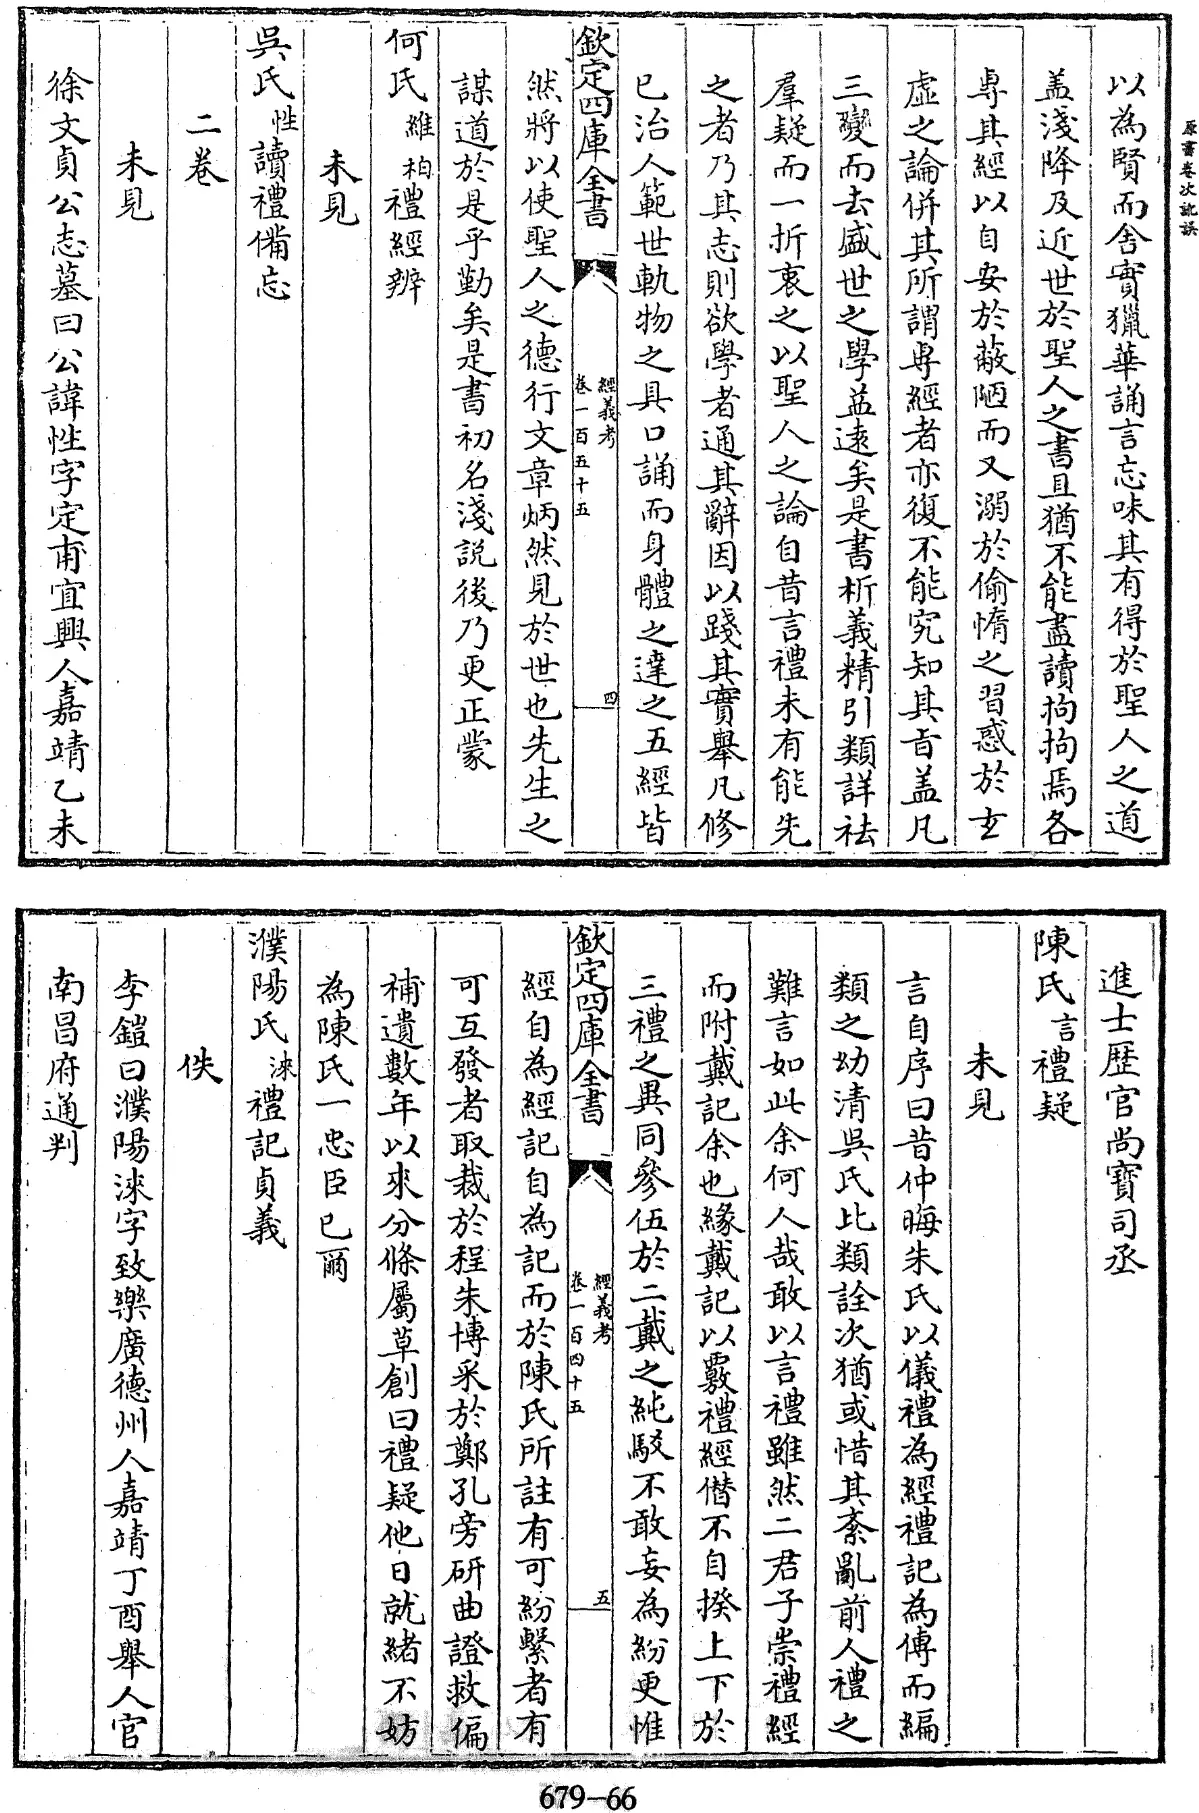 原書卷次訛誤
以為賢而舍實獵華誦言忘味其有得於聖人之道
盖淺降及近世於聖人之書且猶不能盡讀拘拘焉各
専其經以自安於蔽陋而又溺於偷惰之習惑於𤣥
虚之論併其所謂専經者亦復不能究知其㫖盖凡
三變而去盛世之學益逺矣是書析義精引類詳祛
羣疑而一折衷之以聖人之論自昔言禮未有能先
之者乃其志則欲學者通其辭因以踐其實舉凡修
已治人範世軌物之具口誦而身體之達之五經皆
欽定四庫全書
經義考
卷一百五十五
四
然將以使聖人之德行文章炳然見於世也先生之
謀道於是乎勤矣是書初名淺説後乃更正蒙
何氏維柏禮經辨
未見
吳氏性讀禮備忘
二卷
未見
徐文貞公志墓曰公諱性字定甫宜興人嘉靖乙未
進士歴官尚寶司丞
陳氏言禮疑
未見
言自序曰昔仲晦朱氏以儀禮為經禮記為傳而編
類之幼清吳氏比類詮次猶或惜其紊亂前人禮之
難言如此余何人哉敢以言禮雖然二君子崇禮經
而附戴記余也緣戴記以覈禮經僭不自揆上下於
三禮之異同參伍於二戴之純駁不敢妄為紛更惟
欽定四庫全書
經義考
卷一百四十五
五
經自為經記自為記而於陳氏所註有可紛繫者有
可互發者取裁於程朱博采於鄭孔旁研曲證救偏
補遺數年以來分條屬草創曰禮疑他日就緒不妨
為陳氏一忠臣已爾
濮陽氏淶禮記貞義
佚
李鎧曰濮陽淶字致樂廣德州人嘉靖丁酉舉人官
南昌府通判
679-66